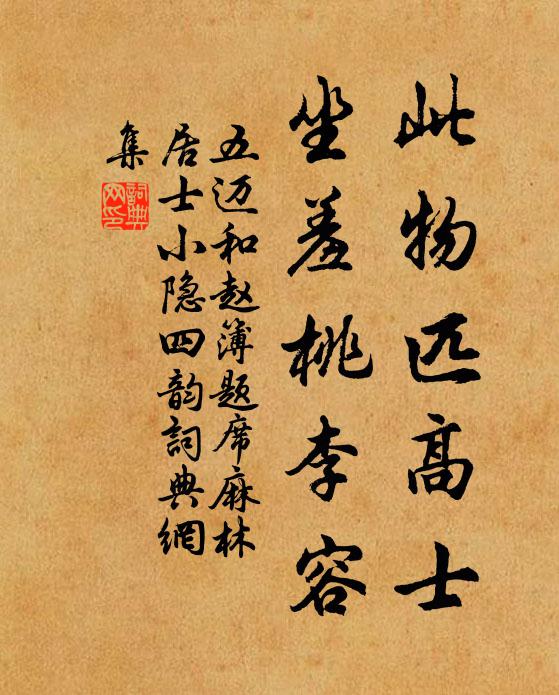 此物匹高士
坐羞桃李容
五迈和赵簿题席麻林
居士小隐四韵詞典網
集
詞典
网印